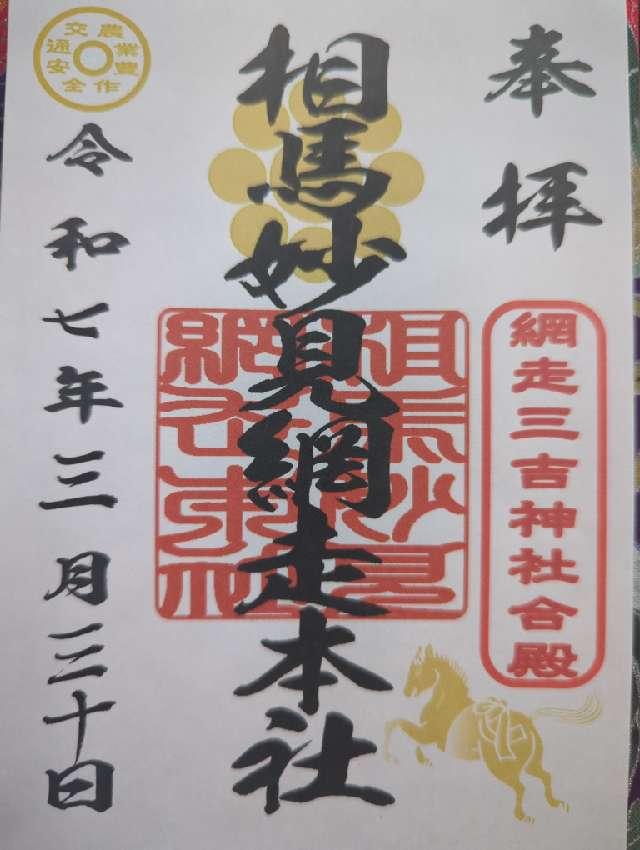 奉拝
網走三吉神社合殿
相馬妙見網走本社
農業豊作
交通安全
令和七年三月三十日